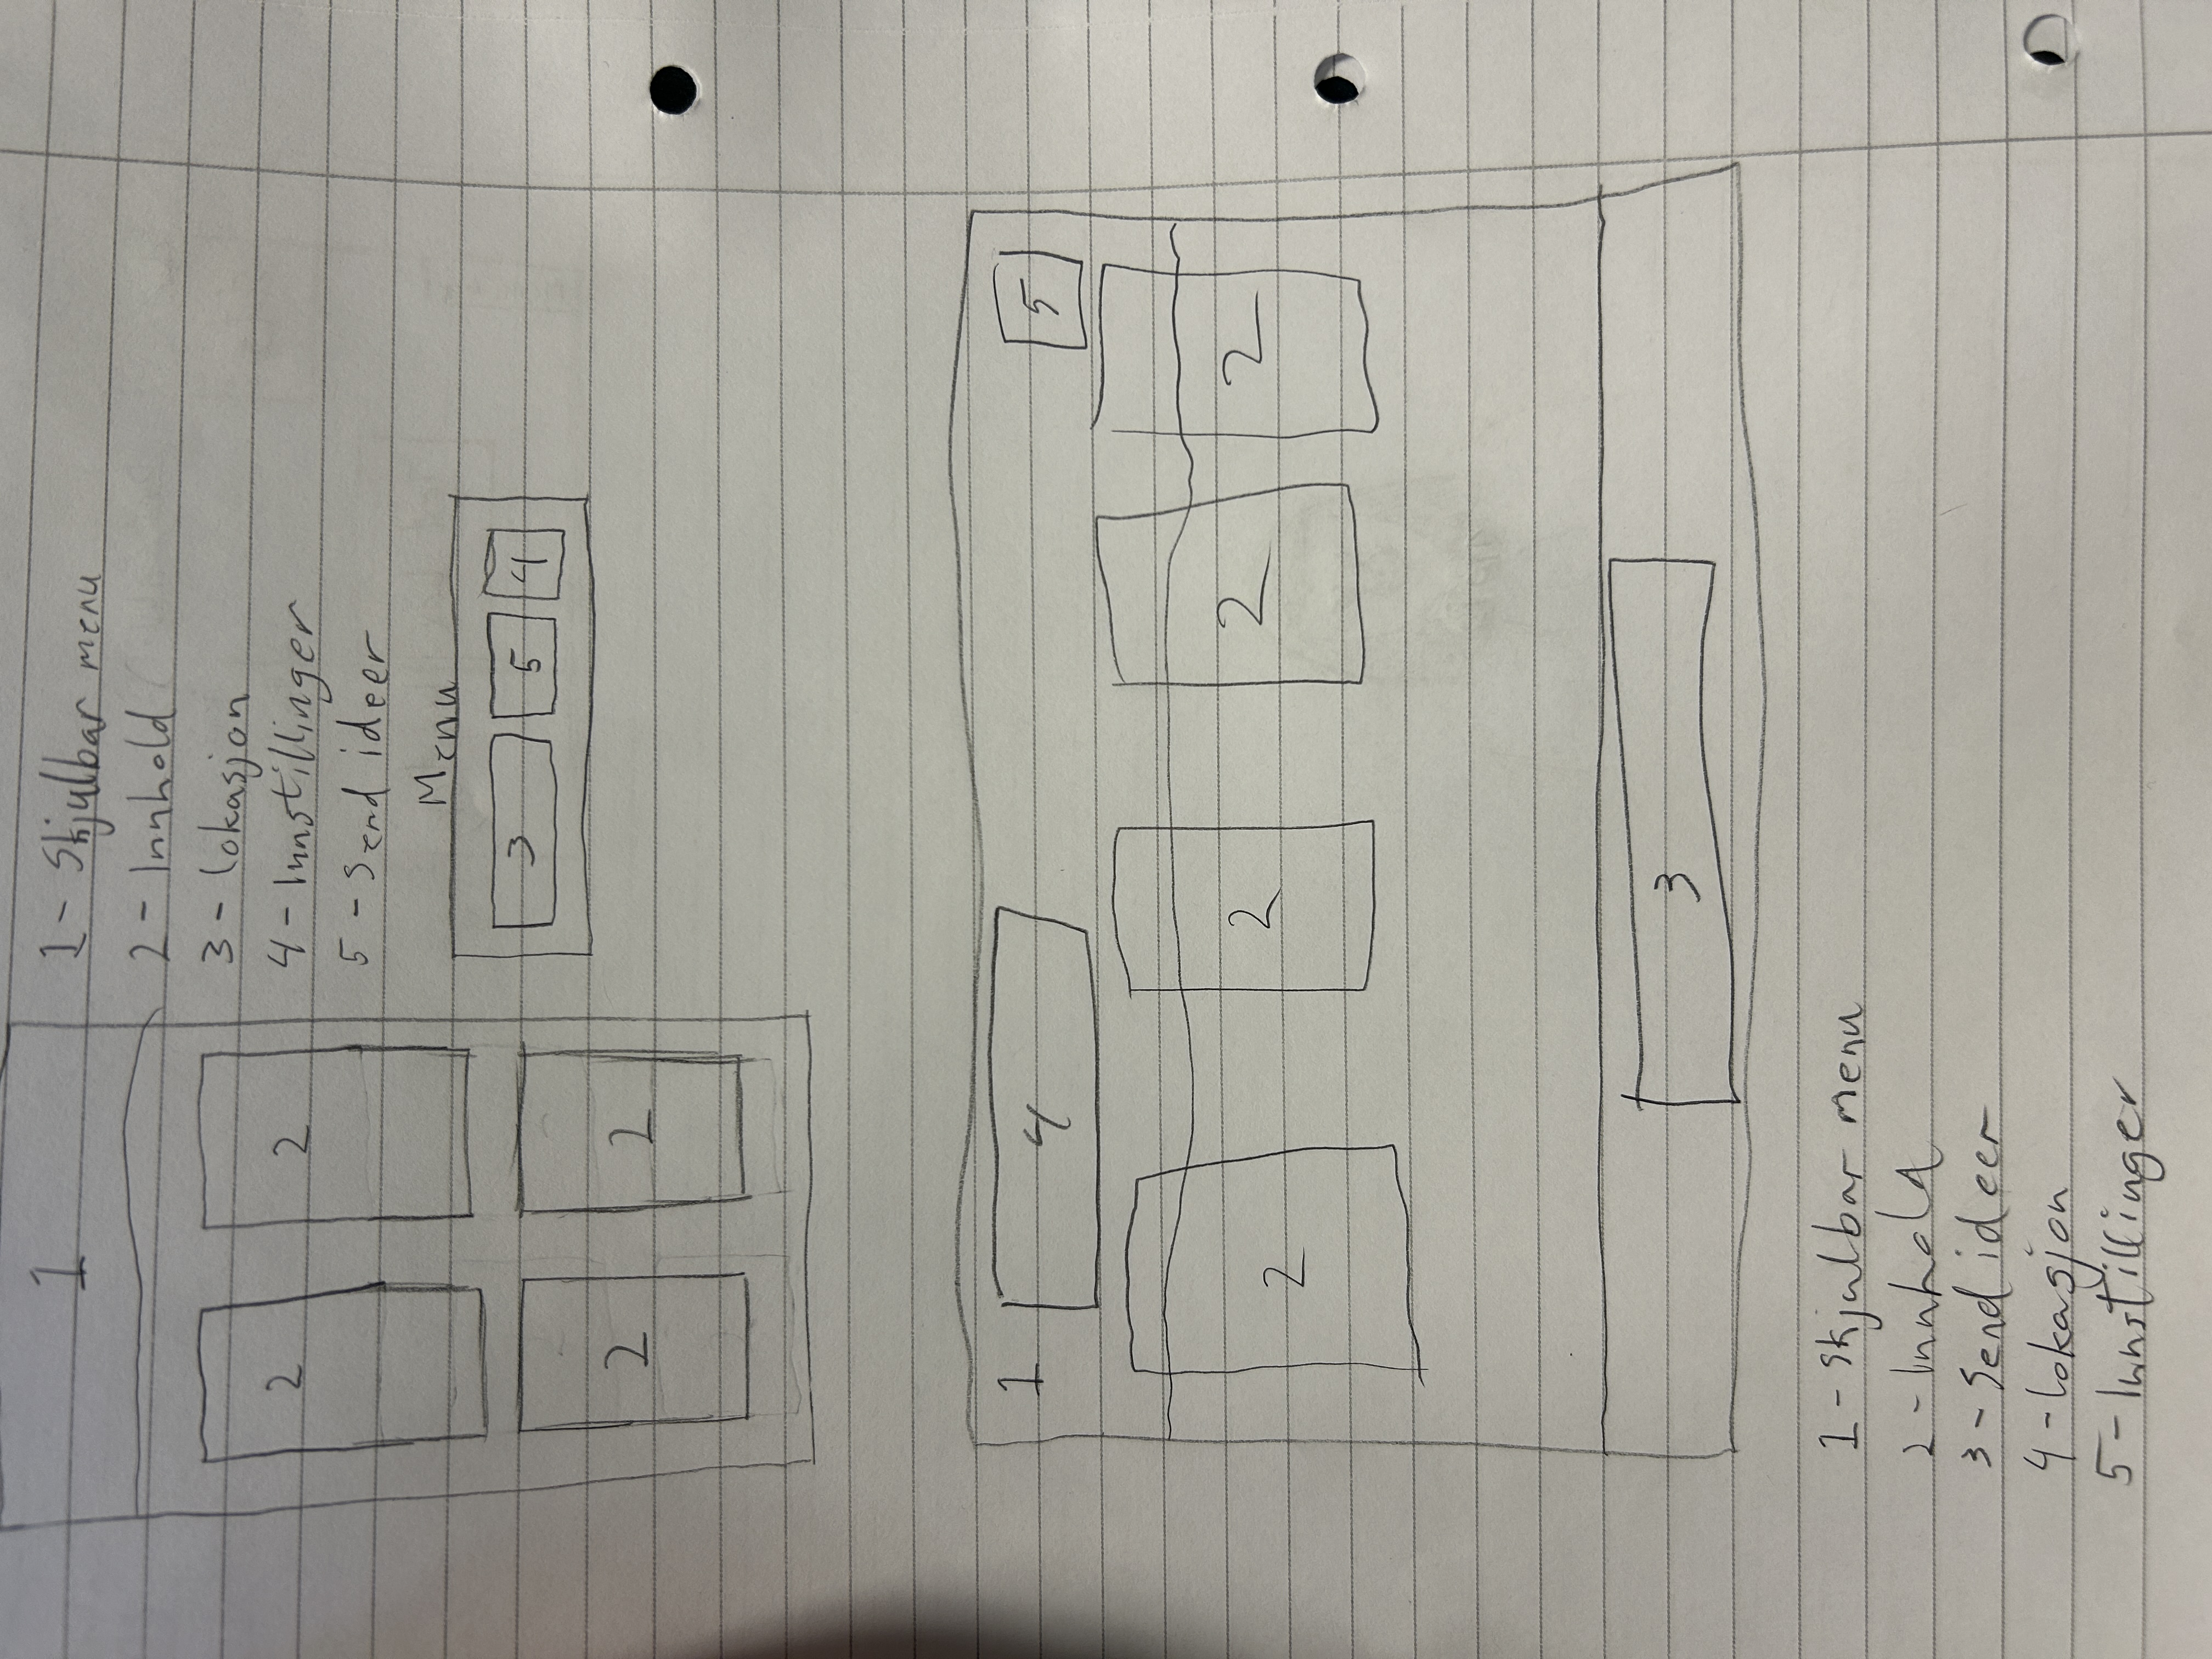 1
1 - Skjulbar menu
2 - Innhold
3 - lokasjon
4 - Innstillinger
5 - Send ideer
2 2
Menu
3 5 4
2 2
1 4 5
2 2 2 2
3
1 - Skjulbar menu
2 - Innhold
3 - Send ideer
4 - lokasjon
5 - Innstillinger